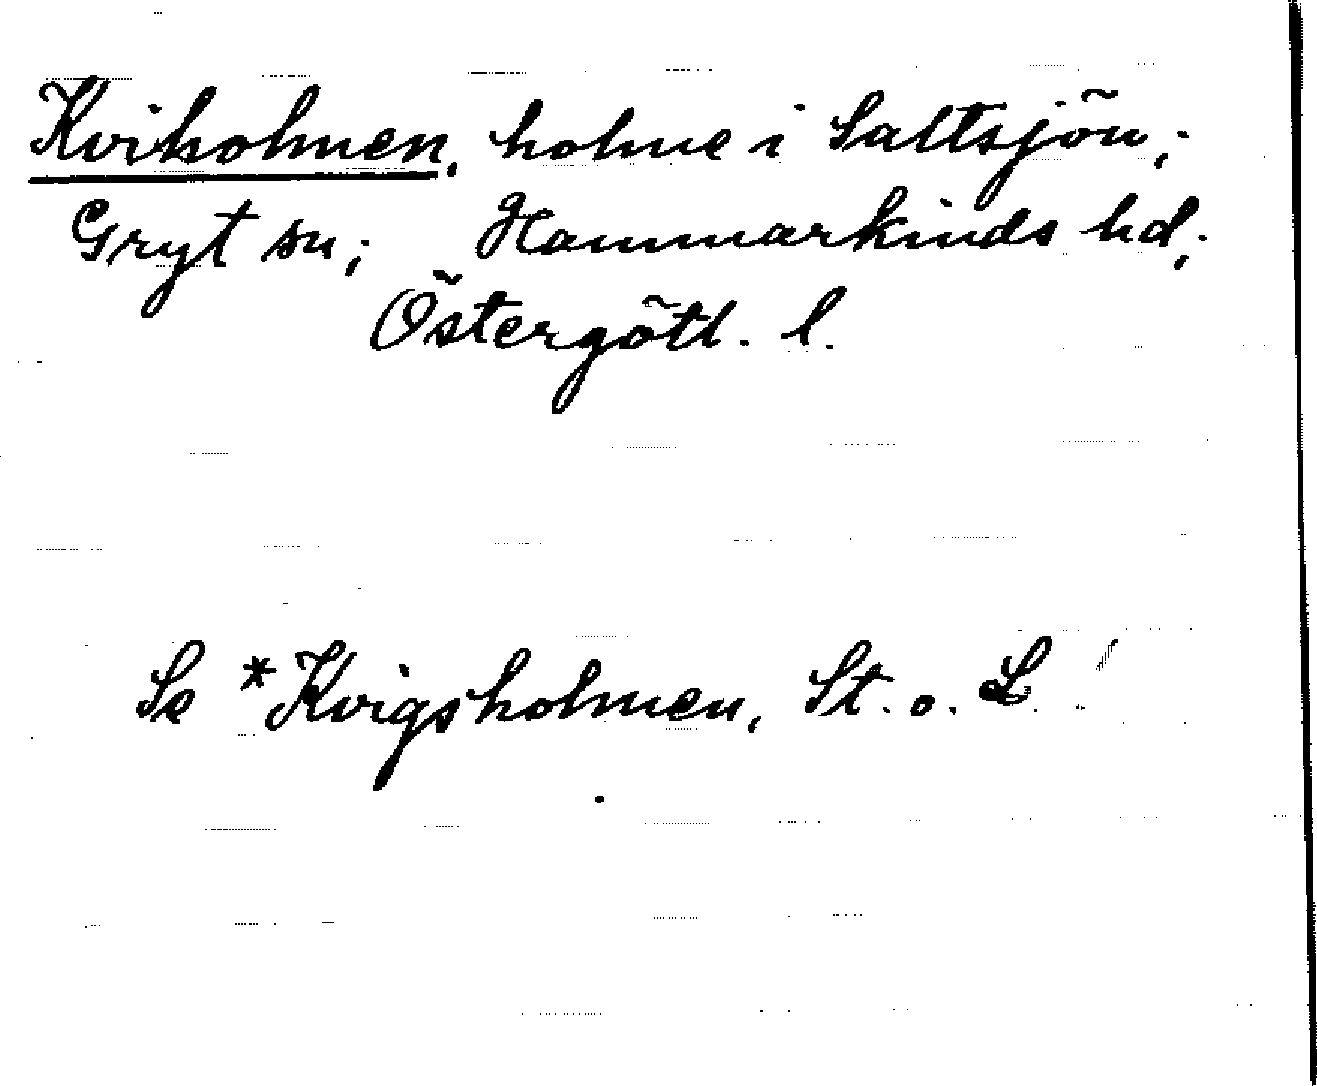 Kviholmen, holme i Saltsjön;
Gryt sn; Hammarkinds hd;
Östergötl. l.
Se *Kvigsholmen, St. o. L